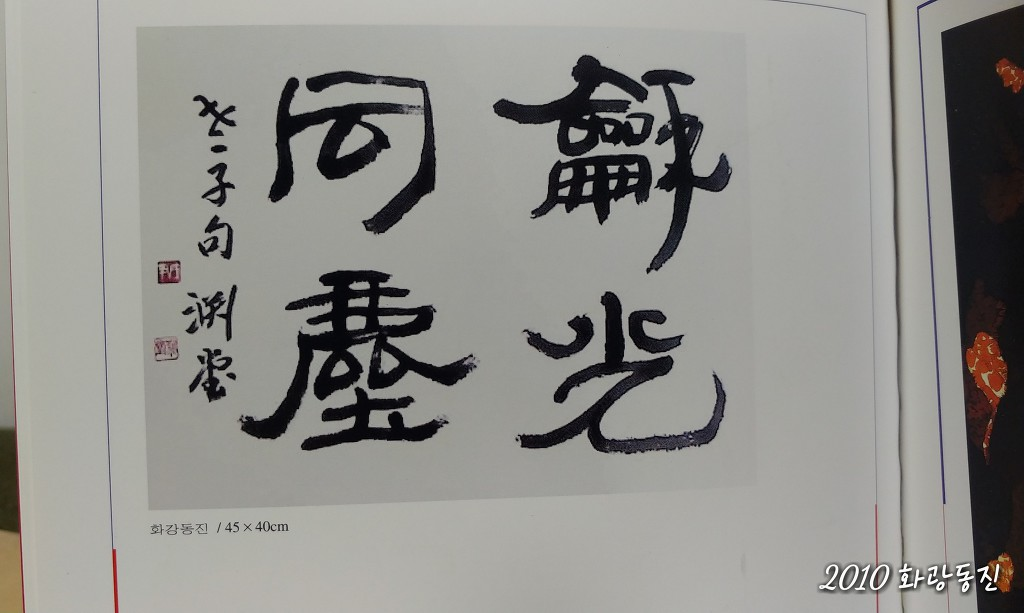 龢光
同塵
老子句 淵堂
화강동진 / 45×40cm
2010 화광동진